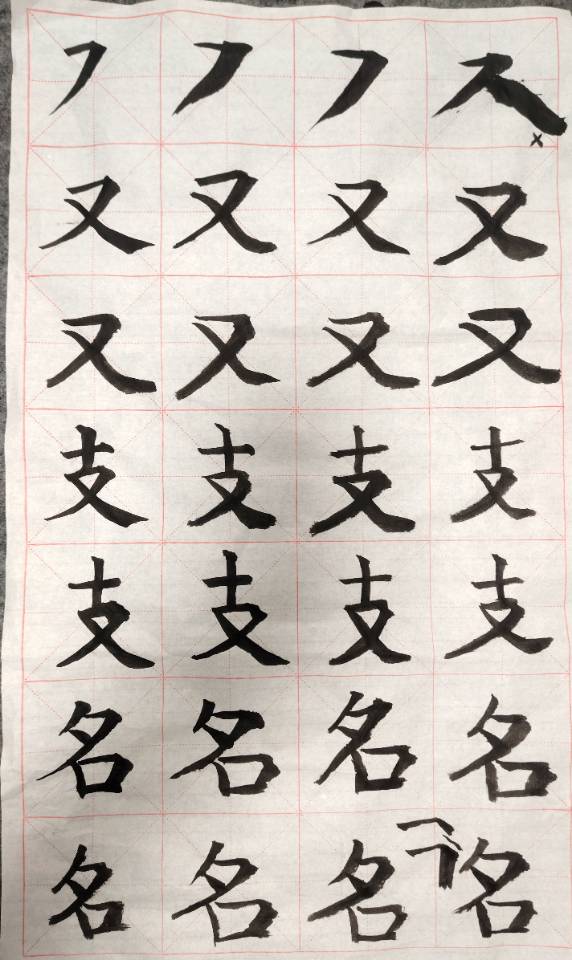 ㇇ ㇇ ㇇ 又
又 又 又 又
又 又 又 又
支 支 支 支
支 支 支 支
名 名 名 名
名 名 名 名